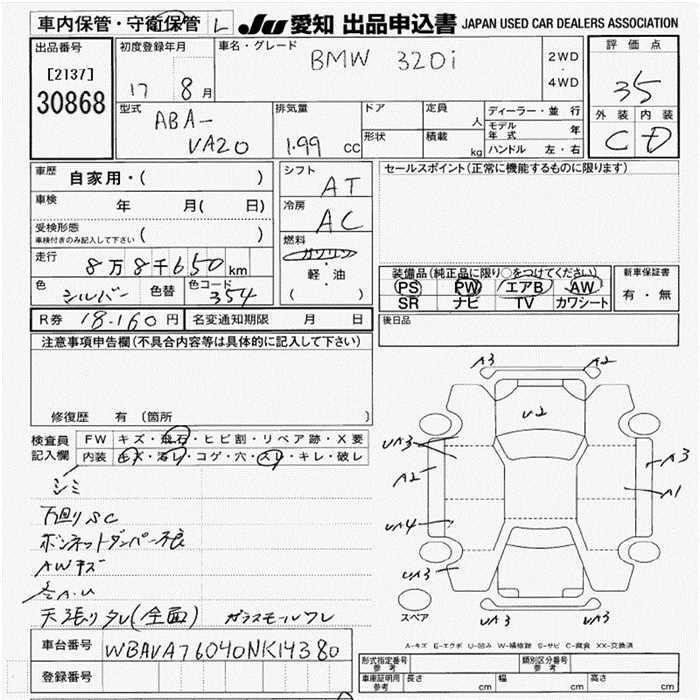 車内保管・守衛保管 L JU 愛知 出品申込書 JAPAN USED CAR DEALERS ASSOCIATION
出品番号
[2137]
30868
初度登録年月
17 8月
車名・グレード
BMW 320i
2WD
・
4WD
評価点
3.5
外装 内装
C D
型式
ABA-
VA20
排気量
1.99 cc
ドア
定員
人
形状
積載
kg
ディーラー・並行
モデル
年式 年
ハンドル 左・右
車歴
自家用・( )
車検
年 月( 日)
受検形態
車検付きのみ記入して下さい ( )
走行
8万8千650km
色
シルバー
色替
色コード
354
シフト
AT
冷房
AC
燃料
ガソリン
・
軽・油
( )
セールスポイント(正常に機能するものに限ります)
装備品(純正品に限り○をつけてください)
PS PW エアB AW
SR ナビ TV カワシート
新車保証書
有・無
R券 18.160円 名変通知期限 月 日
後日品
注意事項申告欄(不具合内容等は具体的に記入して下さい)
修復歴 有(箇所
検査員
記入欄
FW キズ・飛石・ヒビ割・リペア跡・X要
内装 キズ・汚レ・コゲ・穴・スレ・キレ・破レ
シミ
下回りSC
ボンネットダンパー不良
AWキズ
各A.U
天張りタレ(全面) ガラスモールワレ
A3 A2
U2
UA3
A2
UA4
UA3
A3
A1
UA3 UA3
スペア
A-キズ E-エクボ U-凹み W-補修跡 S-サビ C-腐食 XX-交換済
車台番号
WBAVA76040NK14380
登録番号
形式指定番号
参考
類別区分番号
参考
車庫証明用
参考
長さ cm 幅 cm 高さ cm